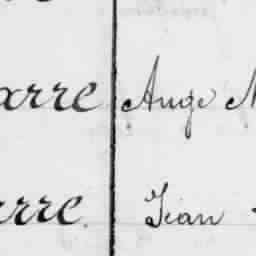 arre Ange
rre Jean